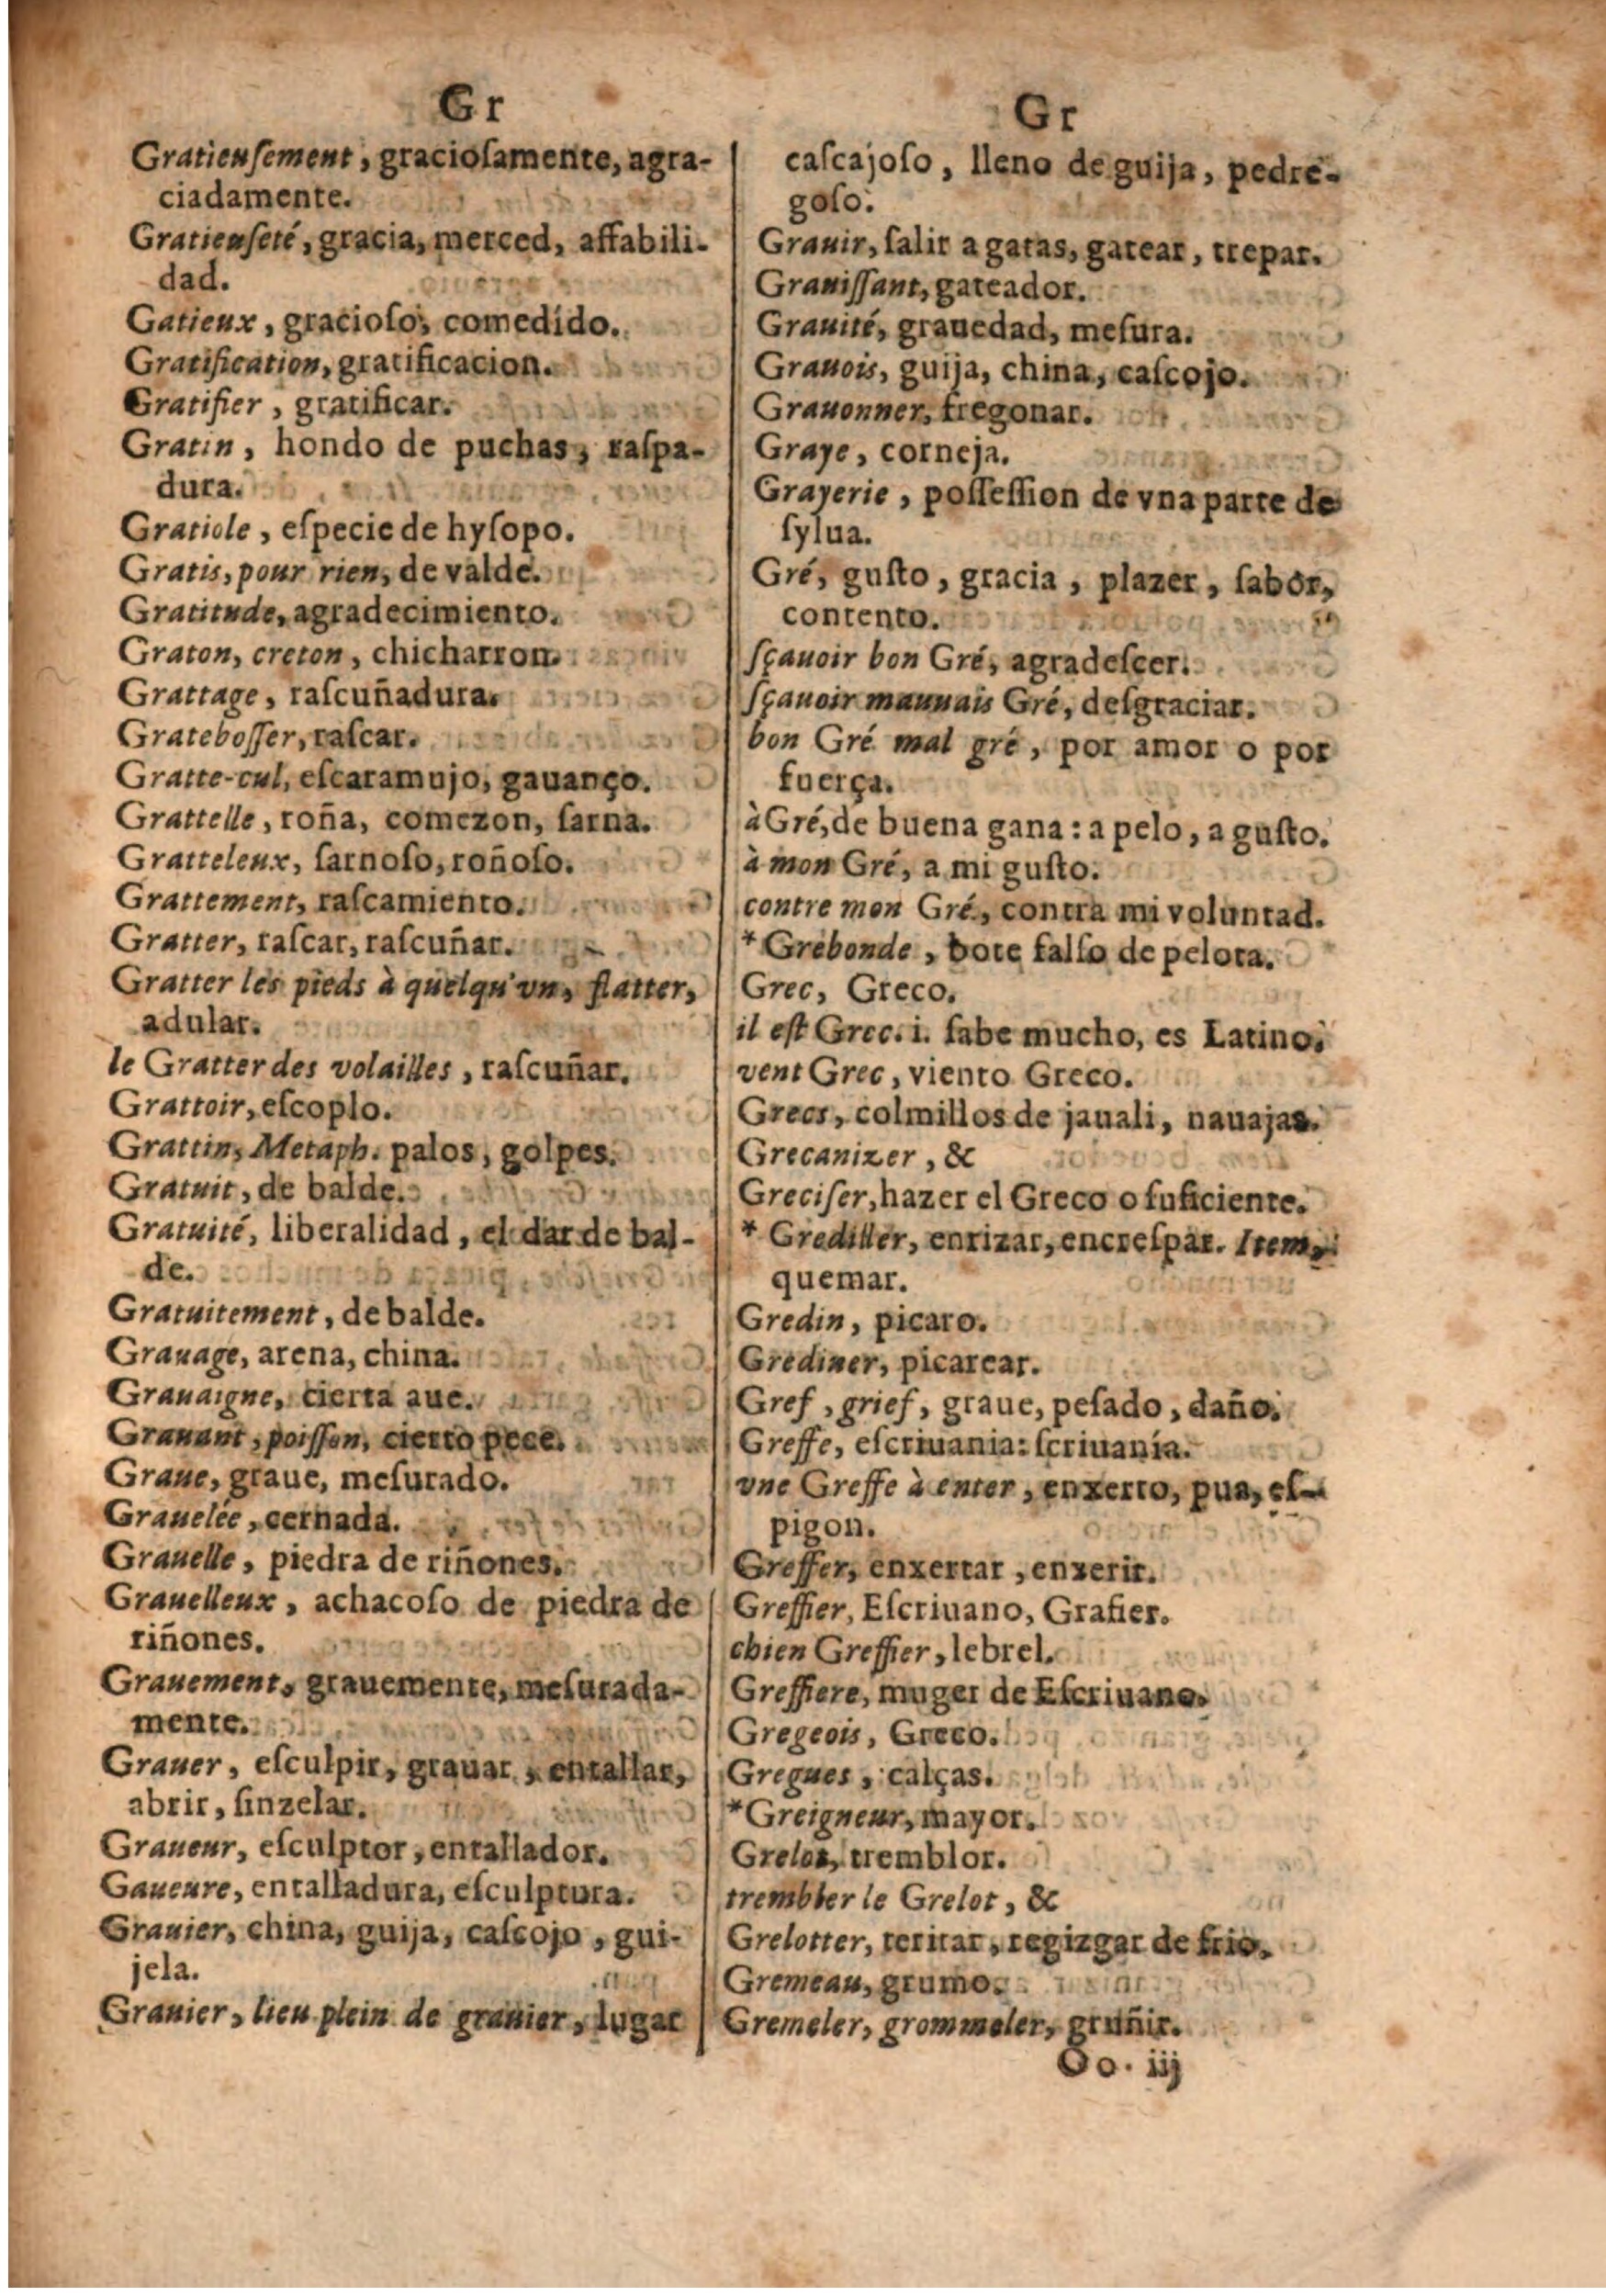 Gr
Gratieuſement, gracioſamente, agra-
ciadamente.
Gratieuſeté, gracia, merced, affabili-
dad.
Gatieux, gracioſo, comedido.
Gratification, gratificacion.
Gratifier, gratificar.
Gratin, hondo de puchas, raſpa-
dura.
Gratiole, eſpecie de hyſopo.
Gratis, pour rien, de valde.
Gratitude, agradecimiento.
Graton, creton, chicharron.
Grattage, raſcuñadura.
Grateboſſer, raſcar.
Gratte-cul, eſcaramujo, gauanço.
Grattelle, roña, comezon, ſarna.
Gratteleux, ſarnoſo, roñoſo.
Grattement, raſcamiento.
Gratter, raſcar, raſcuñar.
Gratter les pieds à quelqu'vn, flatter,
adular.
le Gratter des volailles, raſcuñar.
Grattoir, eſcoplo.
Grattin, Metaph. palos, golpes.
Gratuit, de balde.
Gratuité, liberalidad, el dar de bal-
de.
Gratuitement, de balde.
Grauage, arena, china.
Grauaigne, cierta aue.
Grauant, poiſſon, cierto pece.
Graue, graue, meſurado.
Grauelée, cernada.
Grauelle, piedra de riñones.
Grauelleux, achacoſo de piedra de
riñones.
Grauement, grauemente, meſurada-
mente.
Grauer, eſculpir, grauar, entallar,
abrir, ſinzelar.
Graueur, eſculptor, entallador.
Gaueure, entalladura, eſculptura.
Grauier, china, guija, caſcojo, gui-
jela.
Grauier, lieu plein de grauier, lugar
Gr
caſcajoſo, lleno de guija, pedre-
goſo.
Grauir, ſalir a gatas, gatear, trepar.
Grauiſſant, gateador.
Grauité, grauedad, meſura.
Grauois, guija, china, caſcojo.
Grauonner, fregonar.
Graye, corneja.
Grayerie, poſſeſſion de vna parte de
ſylua.
Gré, guſto, gracia, plazer, ſabor,
contento.
ſçauoir bon Gré, agradeſcer.
ſçauoir mauuais Gré, deſgraciar.
bon Gré mal gré, por amor o por
fuerça.
à Gré, de buena gana: a pelo, a guſto.
à mon Gré, a mi guſto.
contre mon Gré, contra mi voluntad.
* Grebonde, bote falſo de pelota.
Grec, Greco.
il eſt Grec. i. ſabe mucho, es Latino.
vent Grec, viento Greco.
Grecs, colmillos de jauali, nauajas.
Grecanizer, &
Greciſer, hazer el Greco o ſuficiente.
* Grediller, enrizar, encreſpar. Item,
quemar.
Gredin, picaro.
Grediner, picarear.
Gref, grief, graue, peſado, daño.
Greffe, eſcriuania: ſcriuanía.
vne Greffe à enter, enxerto, pua, eſ-
pigon.
Greffer, enxertar, enxerir.
Greffier, Eſcriuano, Grafier.
chien Greffier, lebrel.
Greffiere, muger de Eſcriuano.
Gregeois, Greco.
Gregues, calças.
*Greigneur, mayor.
Grelot, tremblor.
trembler le Grelot, &
Grelotter, teritar, regizgar de frio.
Gremeau, grumo.
Gremeler, grommeler, gruñir.
Oo. iij